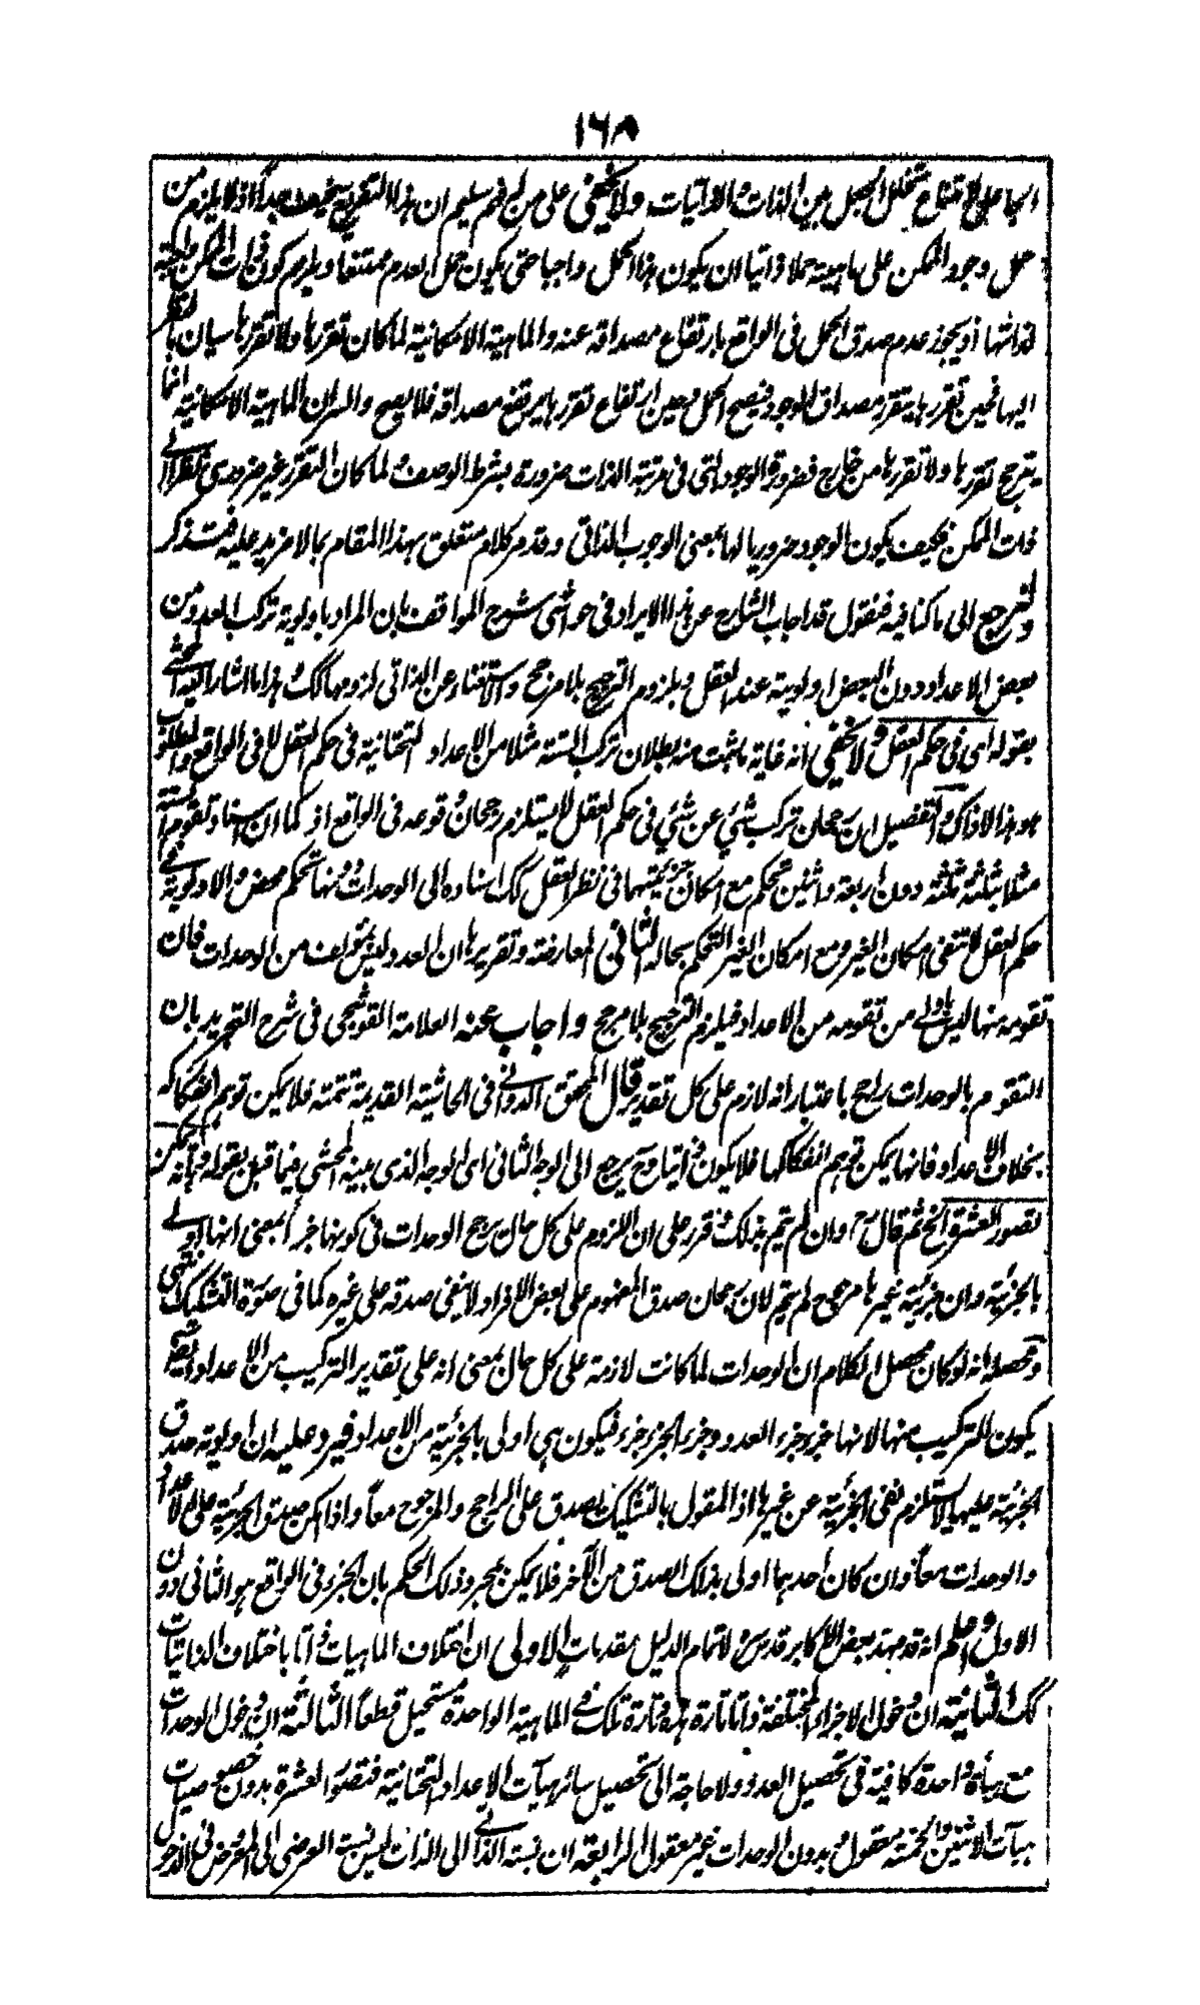 ١٦٨
على امتناع تخلل الجعل بين الذات والذاتيات ولا يخفى على من له فهم سليم ان هذا التقرير سخيف جداً اذ لا يلزم من
حمل وجود الممكن على ماهيته حملا ذاتيا ان يكون هذا الحمل واجبا حتى يكون حمل العدم ممتنعا ويلزم كون ذات الممكن واجبة
لذاتها اذ يجوز عدم صدق الحمل فى الواقع بارتفاع مصداقه عنه والماهية الامكانية لما كان تقررها ولا تقررها سيان بالنظر
اليها فحين تقررها يتقرر مصداق الوجود فيصح الحمل وحين ارتفاع تقررها يرتفع مصداقه فلا يصح والسر ان الماهية الامكانية انما
يترجح تقررها ولا تقررها من خارج فضرورة الوجود التى فى مرتبة الذات ضرورة بشرط الوصف ولما كان التقرر غير ضرورى نظرا الى
ذات الممكن فكيف يكون الوجود ضروريا لها بمعنى الوجوب الذاتى وقد مر كلام متعلق بهذا المقام بما لا مزيد عليه فتذكر
ولنرجع الى ما كنا فيه فنقول قد اجاب الشارح عن هذا الايراد فى حواشى شرح المواقف بان المراد باولوية تركب العدد من
بعض الاعداد دون البعض اولويته عند العقل ويلزم الترجيح بلا مرجح والاستغناء عن الذاتى لزومهما كك هذا ما اشار اليه المحشى
بقوله اى فى حكم العقل ولا يخفى انه غاية ما يثبت منه بطلان تركب الستة مثلا من الاعداد التحتانية فى حكم العقل لا فى الواقع والمطلوب
هو هذا لا ذاك والتفصيل ان رجحان تركب شئ عن شئ فى حكم العقل لا يستلزم رجحان وقوعه فى الواقع اذ كما ان اسناد تقوم الستة
مثلا بثلثة ثلثة دون اربعة واثنين تحكم مع امكان جزئيتهما فى نظر العقل كك اسناده الى الوحدات منها تحكم محض والاولوية فى
حكم العقل لا تنفى امكان الغير ومع امكان الغير التحكم بحاله الثانى المعارضة وتقريرها ان العدد ليس بمؤلف من الوحدات فان
تقومه منها ليس باولى من تقومه من الاعداد فيلزم الترجيح بلا مرجح واجاب عنه العلامة القوشجى فى شرح التجريد بان
التقوم بالوحدات راجح باعتبار انه لازم على كل تقدير قال المحقق الدوانى فى الحاشية القديمة تتمته فلا يمكن توهم انفكاكه
بخلاف الاعداد فانها يمكن توهم انفكاكها فلا يكون ذاتيا وح يرجع الى الوجه الثانى اى الوجه الذى بينه المحشى فيما قبل بقوله وبانه يمكن
تصور العشرة الخ ثم قال وان لم يتم بذلك فقرر على ان اللزوم على كل حال يرجح الوحدات فى كونها جزأ بمعنى انها اولى
بالجزئية وان جزئية غيرها مرجوح لم يتم لان رجحان صدق المفهوم على بعض الافراد لا ينفى صدقه على غيره كما فى صورة التشكيك انتهى
ومحصله انه لو كان محصل الكلام ان الوحدات لما كانت لازمة على كل حال بمعنى انه على تقدير التركيب من الاعداد ايضا
يكون التركيب منها لانها جزء جزء العدد وجزء الجزء جزء فيكون هى اولى بالجزئية من الاعداد فيرد عليه ان اولوية صدق
الجزئية عليها لا يستلزم نفى الجزئية عن غيرها اذ المقول بالتشكيك يصدق على الراجح والمرجوح معا واذا امكن صدق الجزئية على الاعداد
والوحدات معا وان كان احدهما اولى بذلك الصدق من الآخر فلا يمكن بمجرد ذلك الحكم بان الجزء فى الواقع هو الثانى دون
الاول واعلم انه قد مهد بعض الاكابر قدس سره لاتمام الدليل مقدمات الاولى ان اختلاف الماهيات ذاتا باختلاف الذاتيات
كك الثانية ان دخول الاجزاء المختلفة ذاتا تارة هذه وتارة تلك فى الماهية الواحدة مستحيل قطعا الثالثة ان دخول الوحدات
مع هيأة واحدة كافية فى تحصيل العدد ولا حاجة الى تحصيل سائر هيآت الاعداد التحتانية فتصور العشرة بدون خصوصيات
هيآت الاثنين والخمسة معقول وبدون الوحدات غير معقول الرابعة ان نسبة الذاتى الى الذات ليس نسبة العرضى الى المعروض فى الدخول